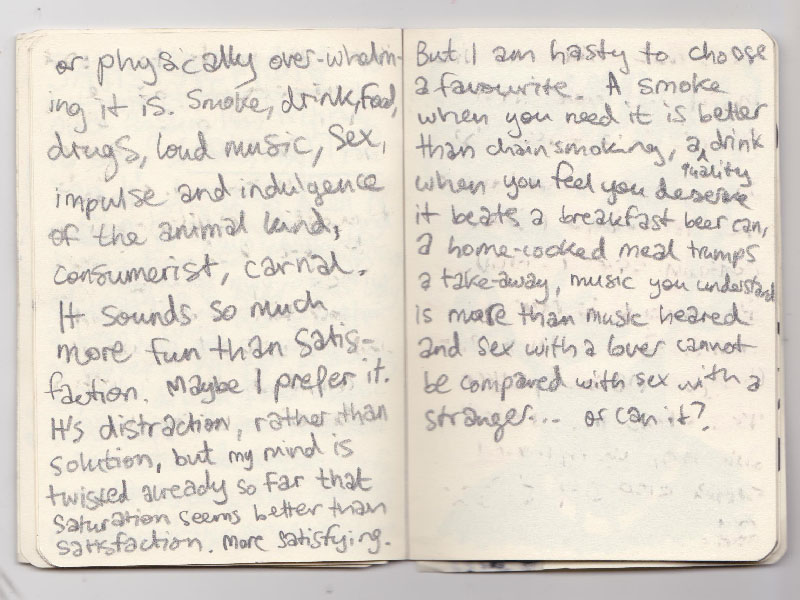 or physically over-whelm-
ing it is. Smoke, drink, food,
drugs, loud music, sex,
impulse and indulgence
of the animal kind;
consumerist, carnal.
It sounds so much
more fun than satis-
faction. Maybe I prefer it.
It's distraction, rather than
solution, but my mind is
twisted already so far that
saturation seems better than
satisfaction. More satisfying.
But I am hasty to choose
a favourite. A smoke
when you need it is better
than chain smoking, a quality drink
when you feel you deserve
it beats a breakfast beer can,
a home-cooked meal trumps
a take-away, music you understand
is more than music heared
and sex with a lover cannot
be compared with sex with a
stranger... or can it?